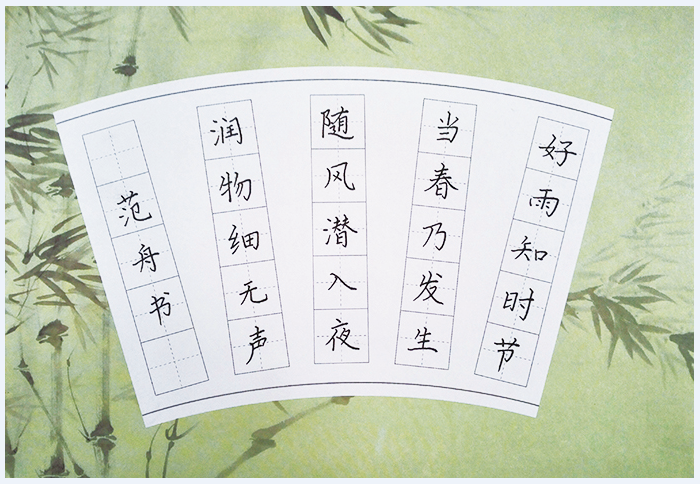 好雨知时节
当春乃发生
随风潜入夜
润物细无声
范舟书